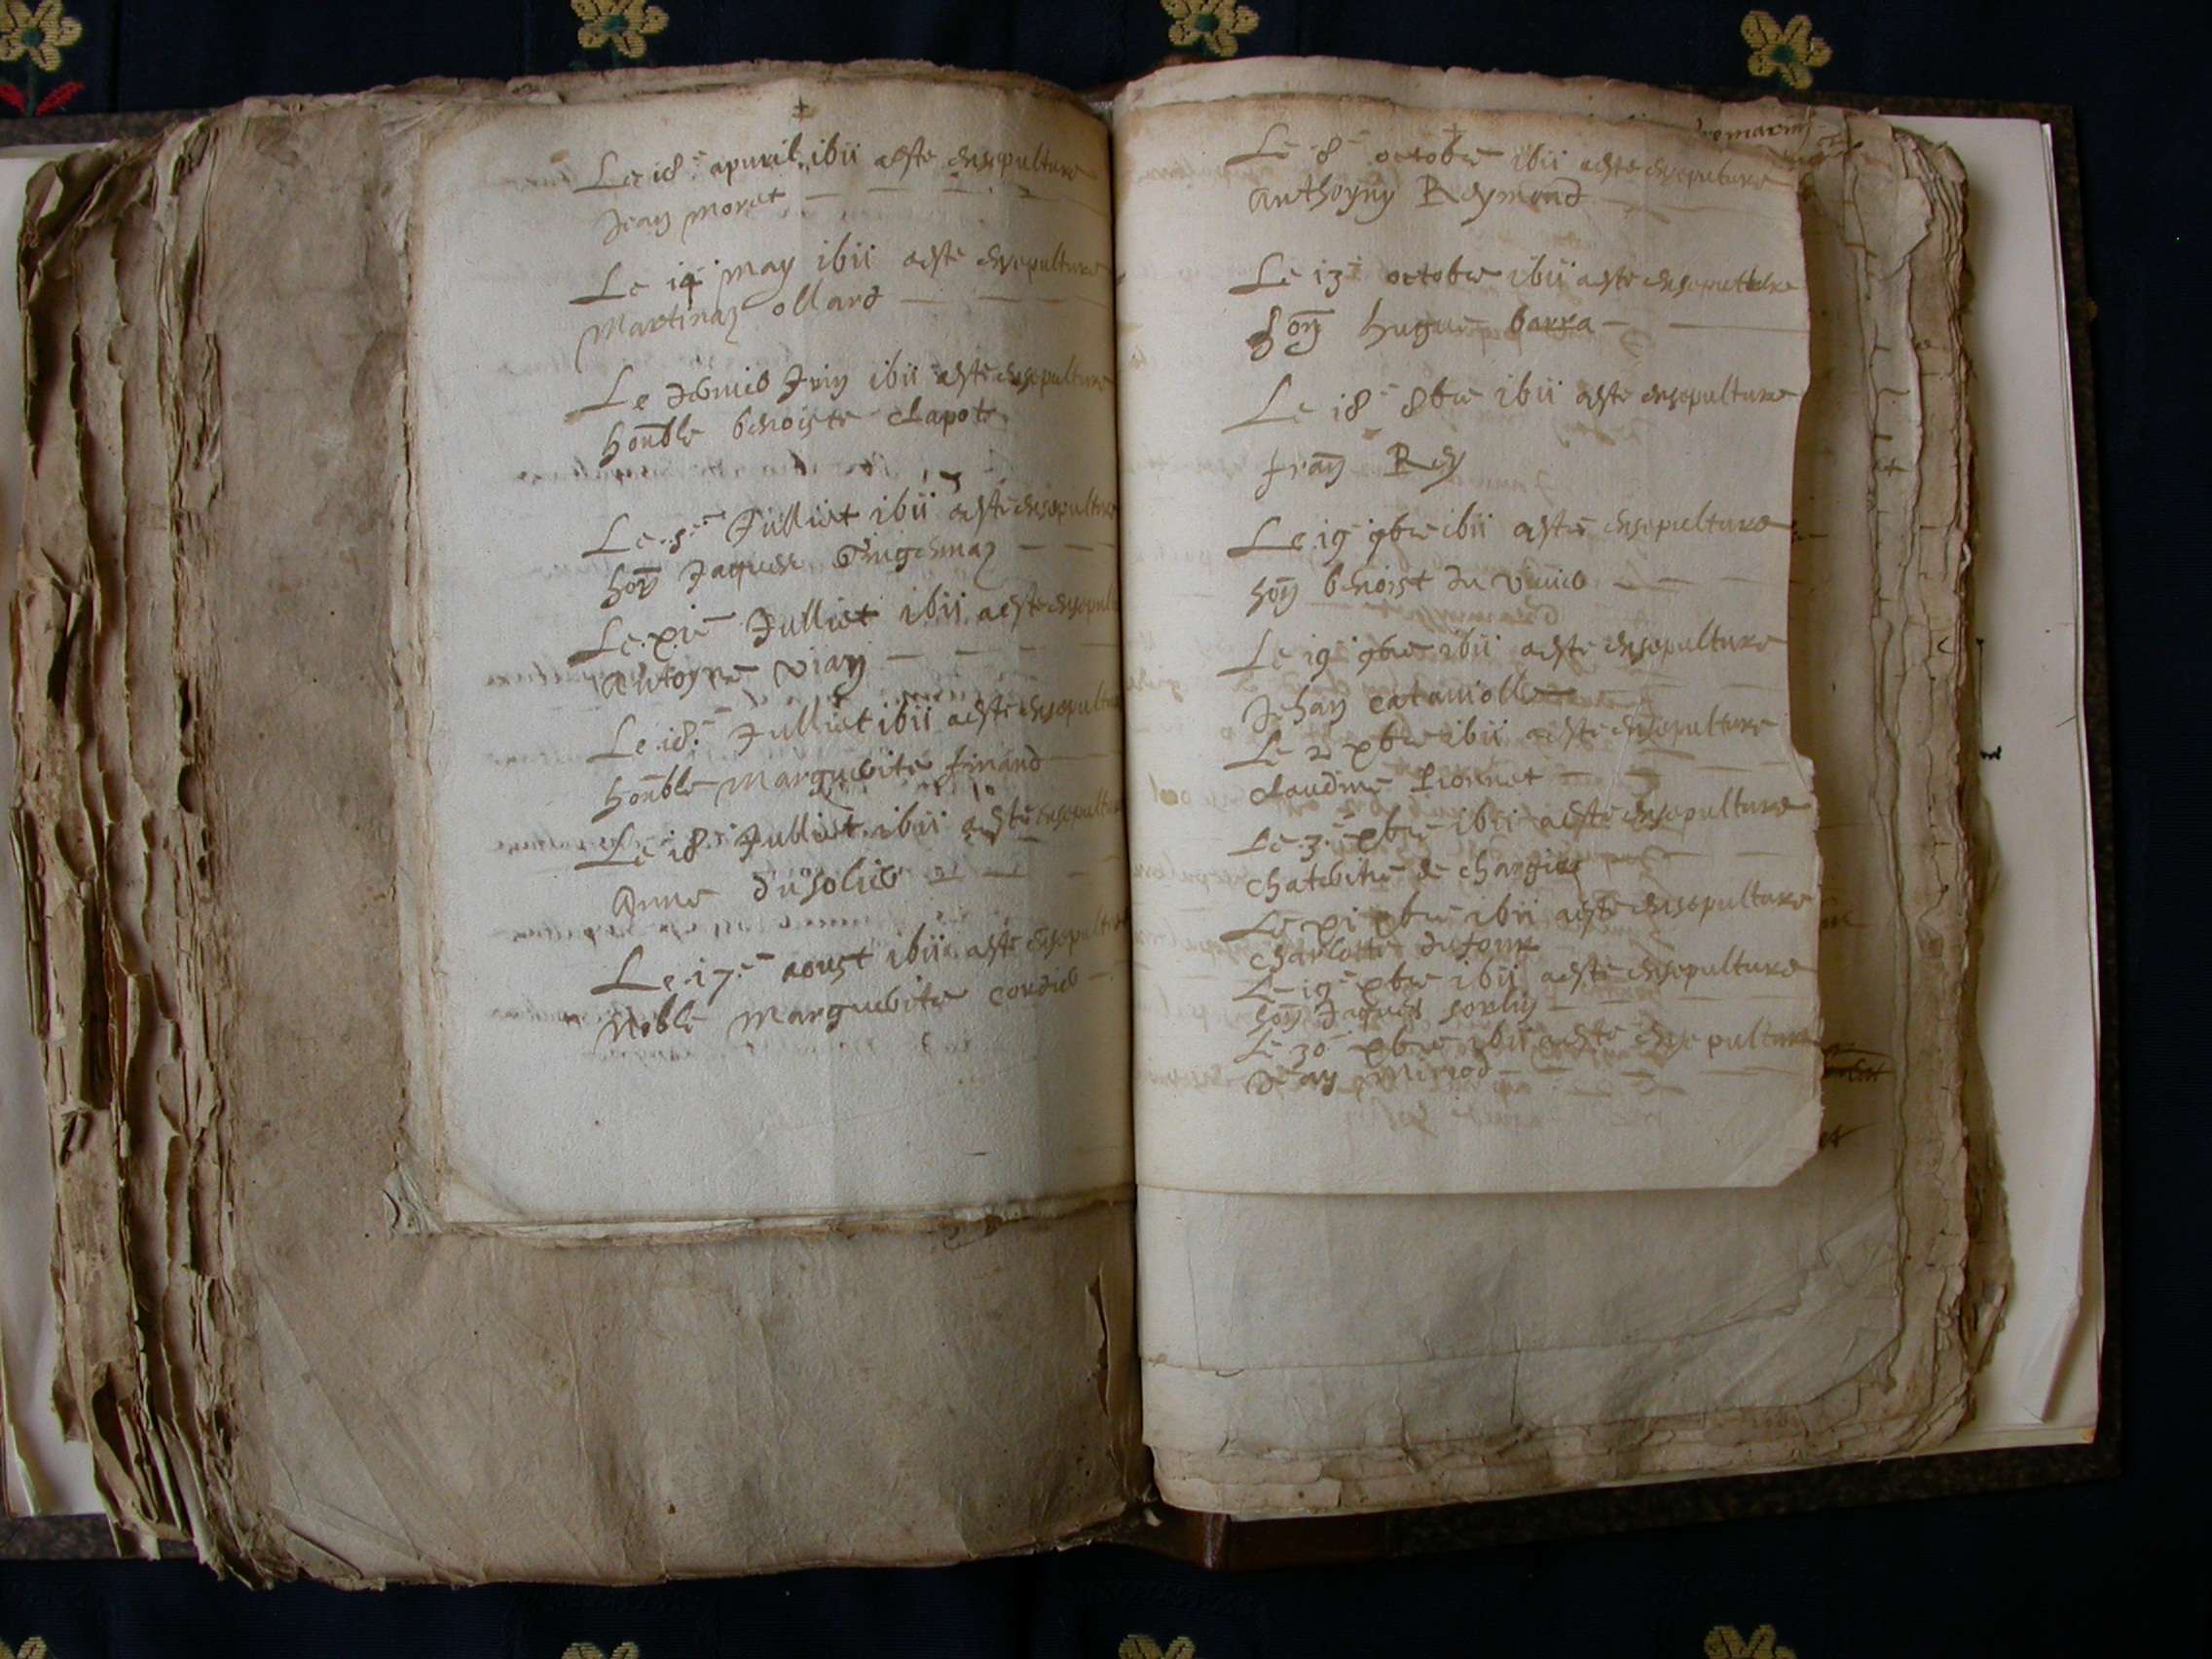 Le 18e apuril ibii a este ensepulture
Jean moret
Le 14e may ibii a este ensepulture
Martinaz ollard
Le dernier Juin ibii a este ensepulture
honble benoiste clapote
Le 5e Julliet ibii a este ensepulture
hon Jaques
Le xie Julliet ibii a este ensepult
Antoyne vian
Le 18e Julliet ibii a este ensepultu
honble marguerite finand
Le 18e Julliet ibii a este ensepultur
Anne dusolier
Le 17e aoust ibii a este ensepultu
Noble marguerite cordier
Le 8e octobre ibii a este ensepulture
anthoyny Reymond
Le 13e octobre ibii a este ensepulture
hon hugue barra
Le 18e 8bre ibii a este ensepulture
fran Rey
Le 19e 9bre ibii a este ensepulture
hon benoist du vivier
Le 19e 9bre ibii a este ensepulture
Jehan cataniolle
Le 2e xbre ibii a este ensepulture
claudine Pionnet
Le 3e xbre ibii a este ensepulture
de
Le xi xbre ibii a este ensepulture
charlotte dufour
Le 19e xbre ibii a este ensepulture
hon Jaques sorlin
Le 30e xbre ibii a este ensepulture
Jean miriod